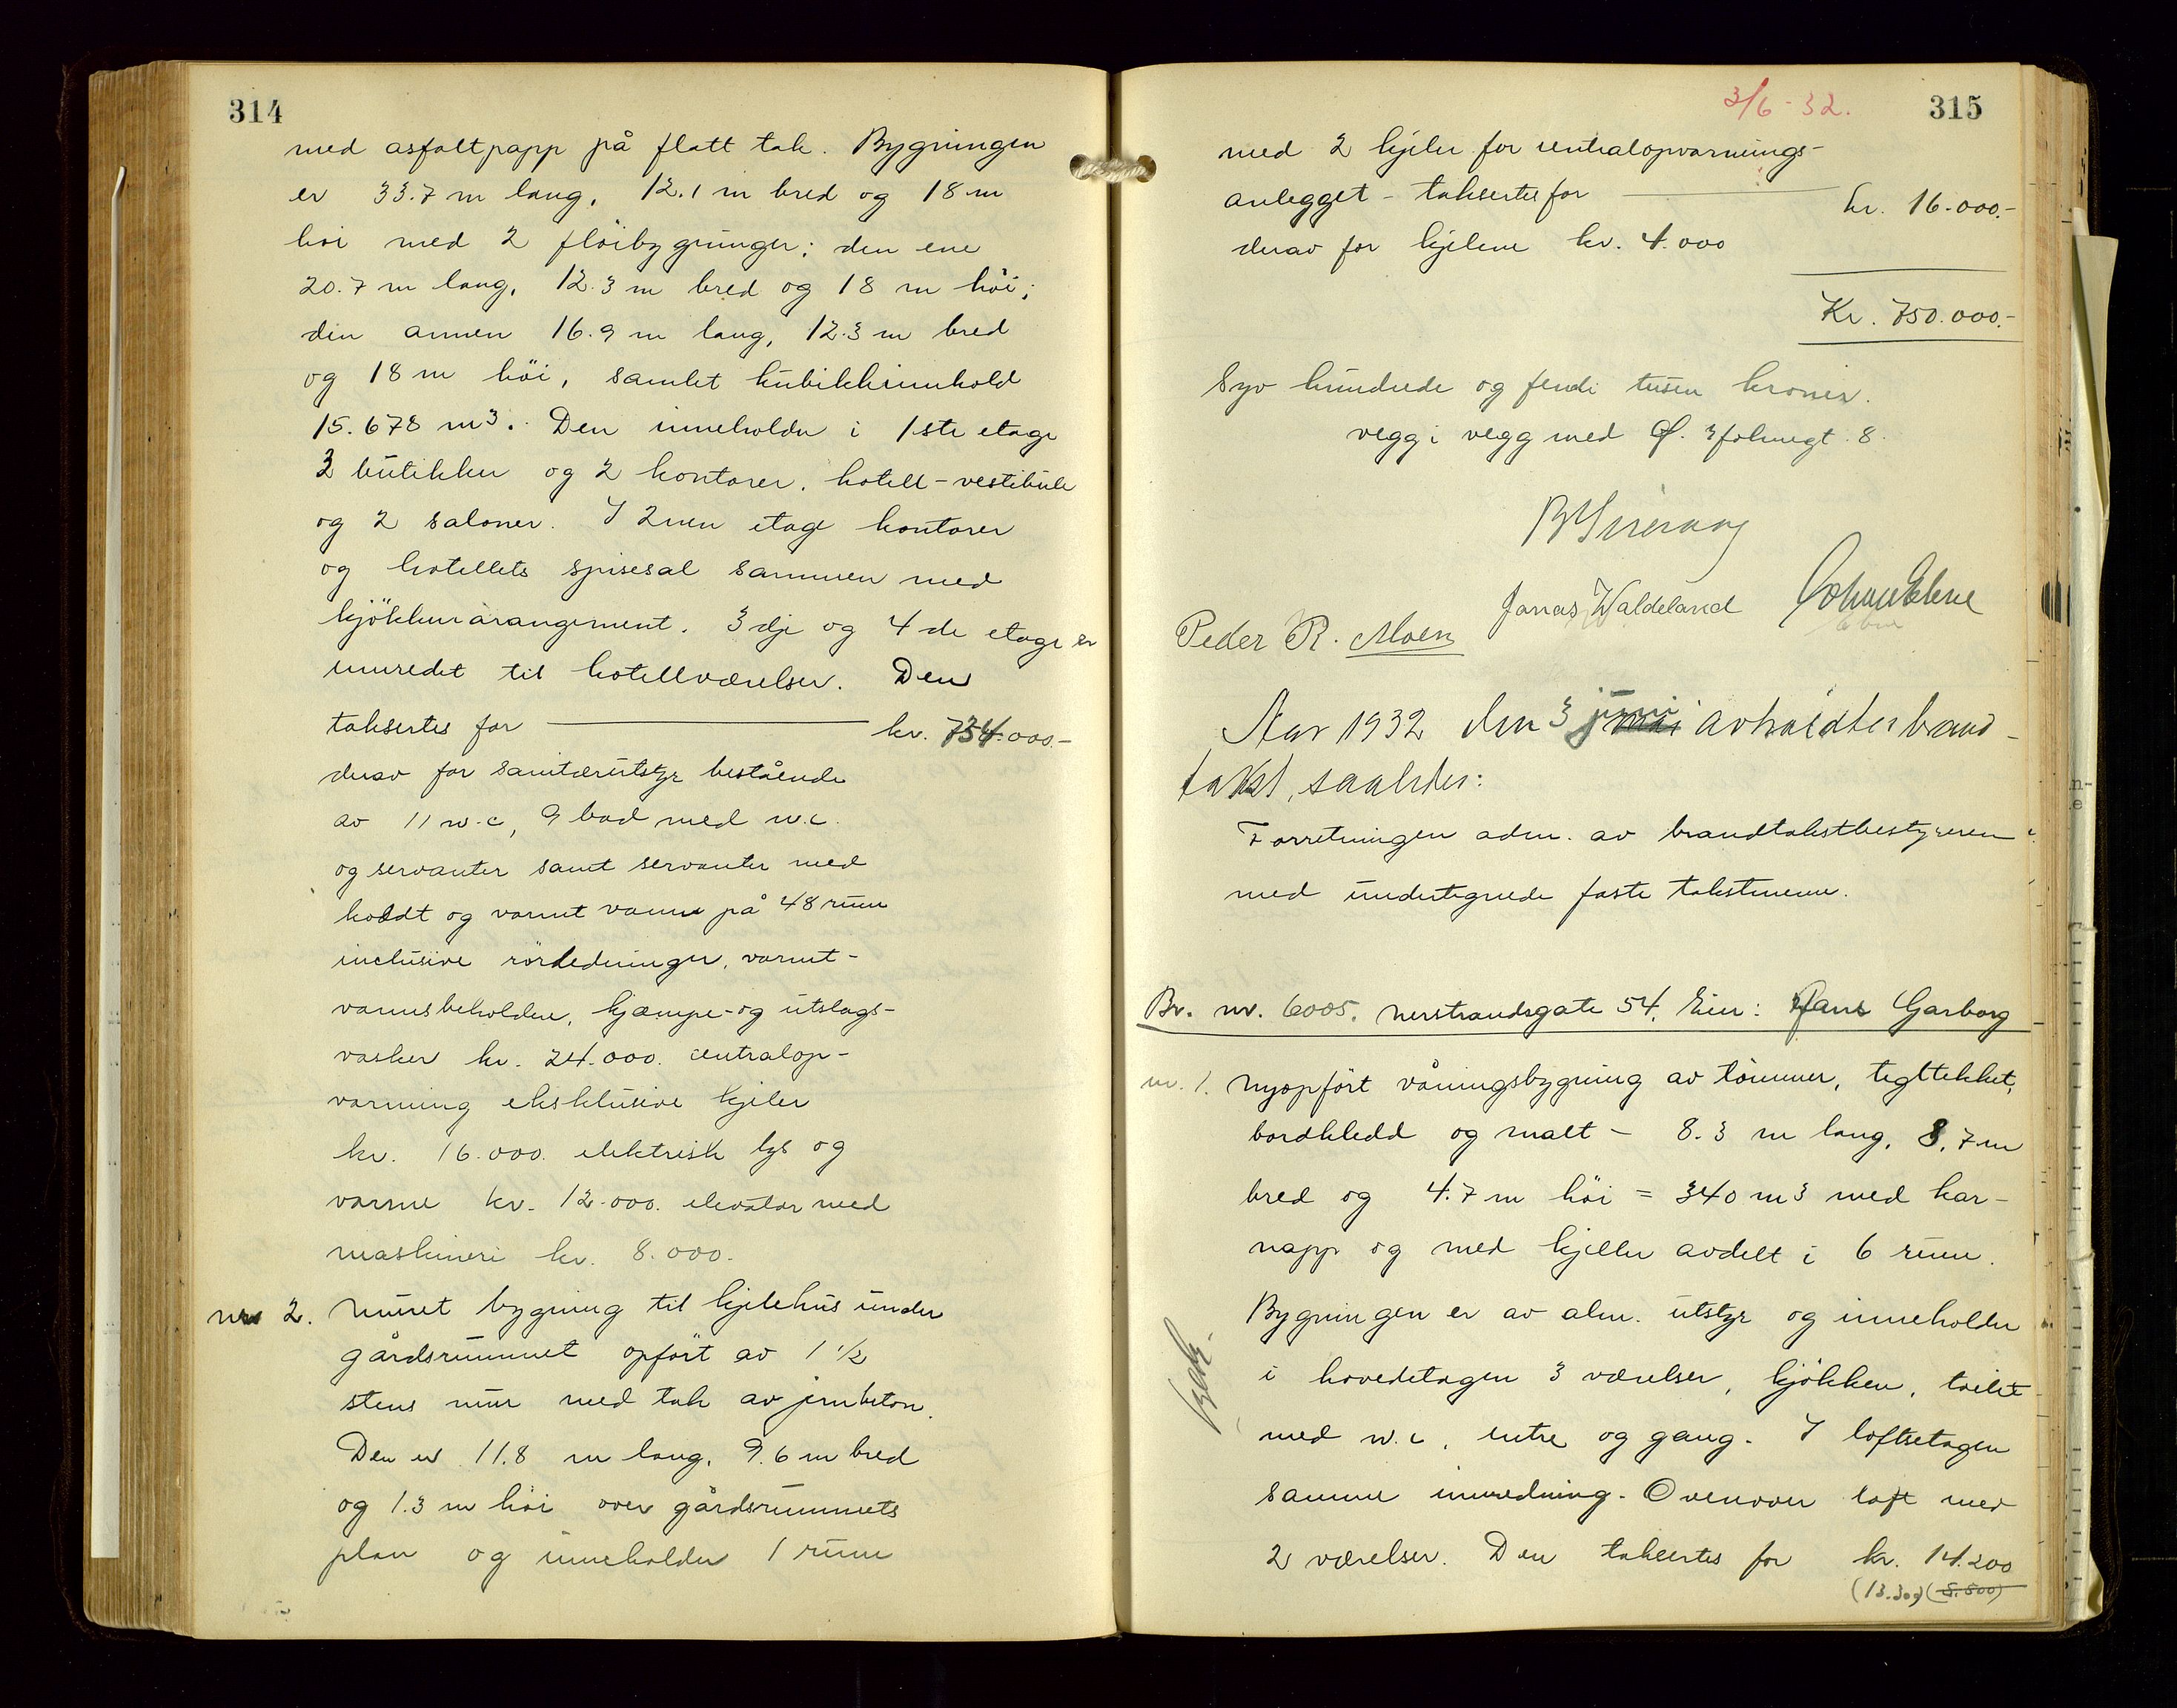 314
med asfaltpapp på flatt tak. Bygningen
er 33.7 m lang, 12.1 m bred og 18 m
höi med 2 flöibygninger: den ene
20.7 m lang, 12.3 m bred og 18 m höi;
den annen 16.9 m lang, 12.3 m bred
og 18 m höi, samlet kubikkinnhold
15.678 m3. Den inneholder i 1ste etage
3 butikker og 2 kontorer, hotell-vestibule
og 2 saloner. I 2nen etage kontorer
og hotellets spisesal sammen med
kjökkenarangement. 3dje og 4de etage er
innredet til hotellværelser. Den
taksertes for kr. 734.000.-
derav for sanitærutstyr bestående
av 11 w.c, 9 bad med w.c.
og servanter samt servanter med
koldt og varmt vann på 48 rum
inclusive rörledninger, varmt-
vannsbeholdere, kjæmpe- og utslags-
vasker kr. 24.000. centralop-
varming eksklusive kjeler
kr. 16.000. elektrisk lys og
varme kr. 12.000. elevator med
maskineri kr. 8.000.
nr 2. Muret bygning til kjelehus under
gårdsrummet opfört av 1 1/2
stens mur med tak av jernbeton.
Den er 11.8 m lang, 9.6 m bred
og 1.3 m höi over gårdsrummets
plan og inneholder 1 rum
3/6-32.
315
med 2 kjeler for centralopvarmings-
anlegget - taksertes for kr. 16.000.-
derav for kjelene kr. 4.000
Kr. 750.000.-
Syv hundrede og femti tusen kroner.
vegg i vegg med
Jonas Waldeland
Peder R. Moen
Aar 1932 den 3 juni mai avholdtes brand-
takst, saaledes:
Forretningen adm. av brandtakstbestyreren
med undertegnede faste takstmenn.
Br. nr. 6005. Nerstrandsgate 54. Eier: Hans Garborg
nr. 1. Nyopfört våningsbygning av tömmer, tegltekket,
bordkledd og malt - 8.3 m lang, 8.7 m
bred og 4.7 m höi = 340 m3 med kar-
napp og med kjeller avdelt i 6 rum.
Bygningen er av alm. utstyr og inneholder
i hovedetagen 3 værelser, kjökken, toilet
med w.c, entre og gang. I loftsetagen
samme innredning. Ovenover loft med
2 værelser. Den taksertes for kr. 14.200
(13.300) (8.500)